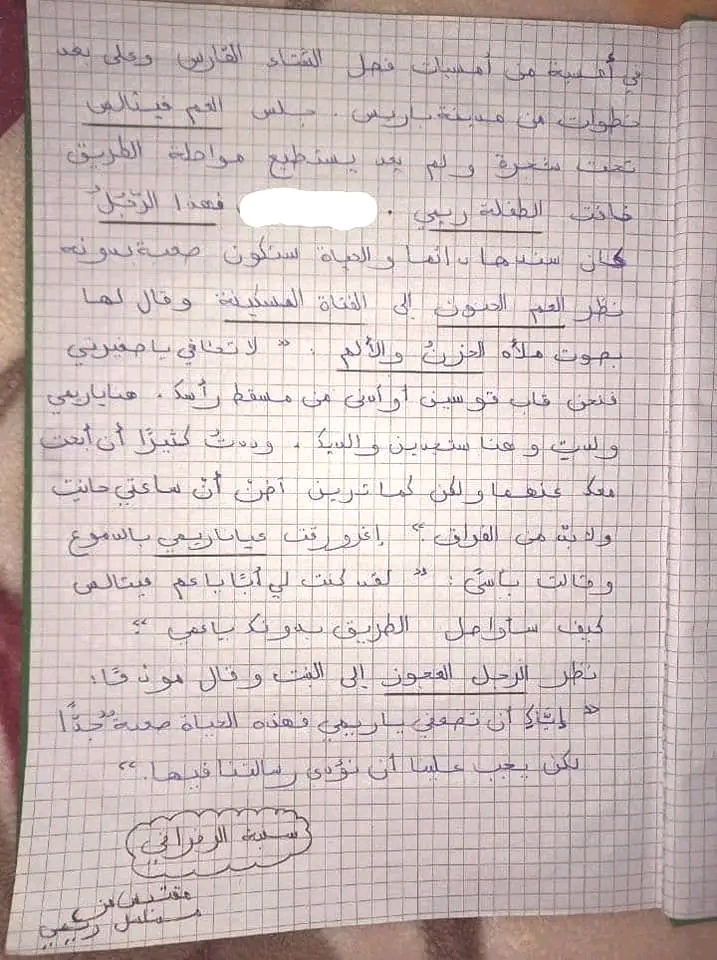 في أمسية من أمسيات فصل الشتاء القارس وعلى بعد
خطوات من مدينة باريس. جلس العم فيتالس
تحت شجرة ولم يعد يستطيع مواصلة الطريق
خافت الطفلة ريمي. فهذا الرّجلُ
كان سندها دائما والحياة ستكون صعبة بدونه
نظر العم الحنون إلى الفتاة المسكينة وقال لها
بصوت ملأه الحزنُ والألم: " لا تخافي يا صغيرتي
فنحن قاب قوسين أو أدنى من مسقط رأسك. هنا يا ريمي
ولدتِ وهنا ستجدين والديك. وددتُ كثيرًا أن أبحث
معك عنهما ولكن كما ترين أظنّ أنّ ساعتي حانت
ولا بدّ من الفراق." إغرورقت عينا ريمي بالدموع
وقالت بأسًى: " لقد كنت لي أبًا يا عم فيتالس
كيف سأواصل الطريق بدونك يا عمي "؟
نظر الرجل العجوز إلى البنت وقال مودعًا:
" إيّاكِ أن تضعفي يا ريمي فهذه الحياة صعبةٌ جدًّا
لكن يجب علينا أن نؤدي رسالتنا فيها."
سنية الزمراني
مقتبس من
مسلسل ريمي